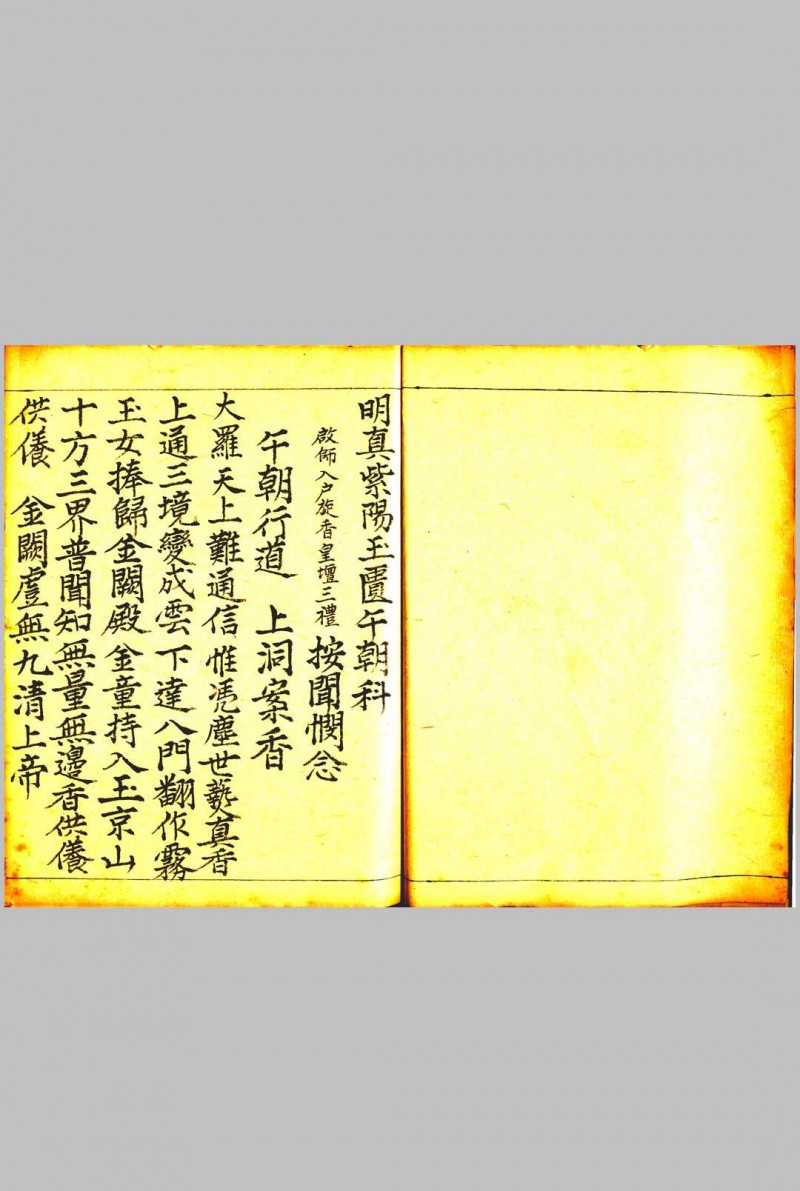 明真紫陽玉匱午朝科
啟師入户旋香皇壇三禮 按聞憫念
午朝行道 上洞案香
大羅天上難通信惟凴塵世爇真香
上通三境變成雲下達八門翻作霧
玉女捧歸金闕殿金童持入玉京山
十方三界普聞知無量無邊香供養
供養 金闕虗無九清上帝